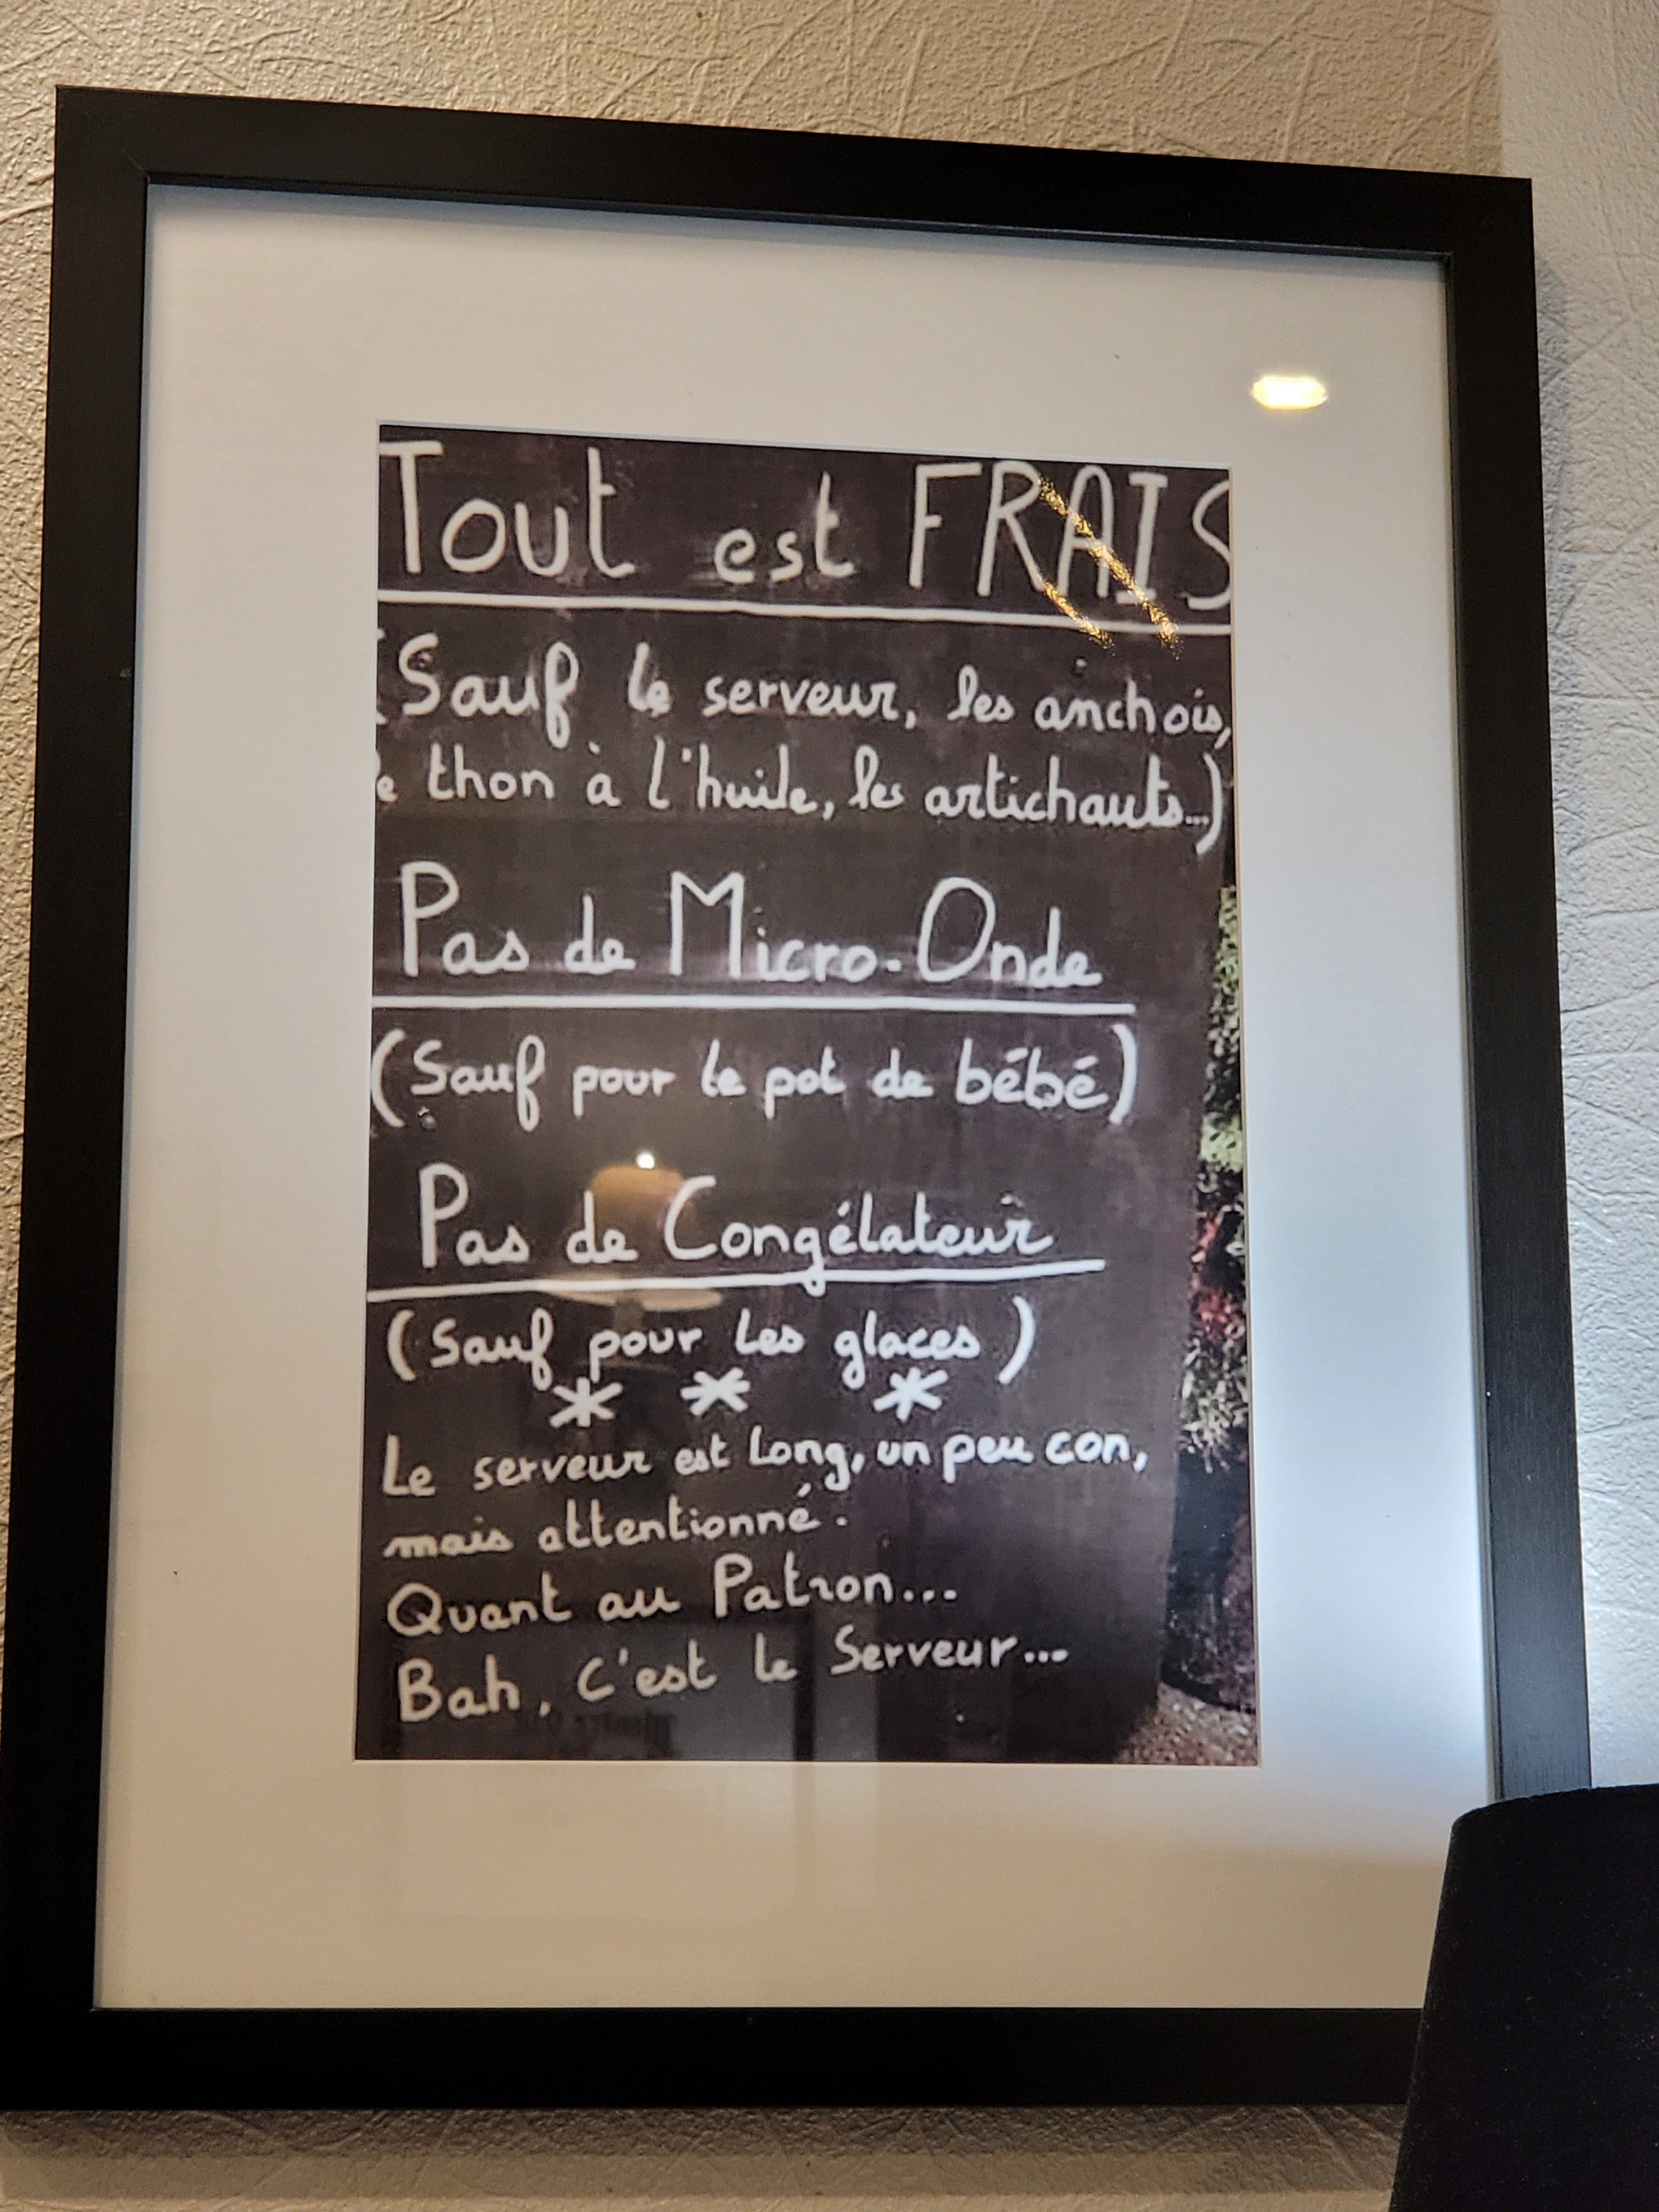 Tout est FRAIS
(Sauf le serveur, les anchois,
le thon à l'huile, les artichauts...)
Pas de Micro-Onde
(Sauf pour le pot de bébé)
Pas de Congélateur
(Sauf pour les glaces)
* * *
Le serveur est Long, un peu con,
mais attentionné.
Quant au Patron...
Bah, c'est le Serveur...